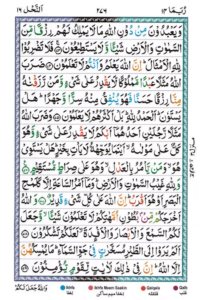 رُبَمَا ١٤ ٢٤٩ اَلنَّحْل ١٦
وَيَعْبُدُوْنَ مِنْ دُوْنِ اللّٰهِ مَا لَا يَمْلِكُ لَهُمْ رِزْقًا مِّنَ
السَّمٰوٰتِ وَالْاَرْضِ شَيْـًٔا وَّلَا يَسْتَطِيْعُوْنَ ۝ فَلَا تَضْرِبُوْا
لِلّٰهِ الْاَمْثَالَ ۭ اِنَّ اللّٰهَ يَعْلَمُ وَاَنْتُمْ لَا تَعْلَمُوْنَ ۝ ضَرَبَ
اللّٰهُ مَثَلًا عَبْدًا مَّمْلُوْكًا لَّا يَقْدِرُ عَلٰى شَيْءٍ وَّمَنْ رَّزَقْنٰهُ
مِنَّا رِزْقًا حَسَنًا فَهُوَ يُنْفِقُ مِنْهُ سِرًّا وَّجَهْرًا ۭ هَلْ
يَسْتَوٗنَ ۭ اَلْحَمْدُ لِلّٰهِ ۭ بَلْ اَكْثَرُهُمْ لَا يَعْلَمُوْنَ ۝ وَضَرَبَ اللّٰهُ
مَثَلًا رَّجُلَيْنِ اَحَدُهُمَآ اَبْكَمُ لَا يَقْدِرُ عَلٰى شَيْءٍ وَّهُوَ
كَلٌّ عَلٰى مَوْلٰىهُ ۙ اَيْنَمَا يُوَجِّهْهُّ لَا يَاْتِ بِخَيْرٍ ۭ هَلْ يَسْتَوِيْ
هُوَ ۙ وَمَنْ يَّاْمُرُ بِالْعَدْلِ ۙ وَهُوَ عَلٰى صِرَاطٍ مُّسْتَقِيْمٍ ۝
وَلِلّٰهِ غَيْبُ السَّمٰوٰتِ وَالْاَرْضِ ۭ وَمَآ اَمْرُ السَّاعَةِ اِلَّا كَلَمْحِ
الْبَصَرِ اَوْ هُوَ اَقْرَبُ ۭ اِنَّ اللّٰهَ عَلٰى كُلِّ شَيْءٍ قَدِيْرٌ ۝ وَاللّٰهُ
اَخْرَجَكُمْ مِّنْۢ بُطُوْنِ اُمَّهٰتِكُمْ لَا تَعْلَمُوْنَ شَيْـًٔا ۙ وَّجَعَلَ
لَكُمُ السَّمْعَ وَالْاَبْصَارَ وَالْاَفْـِٕدَةَ ۙ لَعَلَّكُمْ تَشْكُرُوْنَ ۝
اَلَمْ يَرَوْا اِلَى الطَّيْرِ مُسَخَّرٰتٍ فِيْ جَوِّ السَّمَآءِ ۭ مَا يُمْسِكُهُنَّ
اِلَّا اللّٰهُ ۭ اِنَّ فِيْ ذٰلِكَ لَاٰيٰتٍ لِّقَوْمٍ يُّؤْمِنُوْنَ ۝
وَاللّٰهُ جَعَلَ لَكُمْ